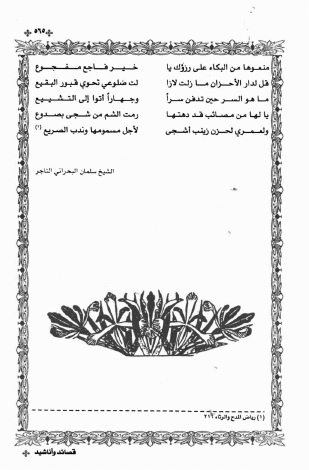 ٥٦٥
منعوها من البكاء على رزؤك يا خير فاجع مفجوع
قل لدار الأحزان ما زلت لازا لت ضلوعي تحوي قبور البقيع
ما هو السر حين تدفن سراً وجهاراً أتوا إلى التشييع
يا لها من مصائب قد دهتها رمت الشم من شجى بصدوع
ولعمري لحزن زينب أشجى لأجل مسمومها وندب الصريع (١)
الشيخ سلمان البحراني التاجر
(١) رياض المدح والرثاء ٢١٦
قصائد وأناشيد